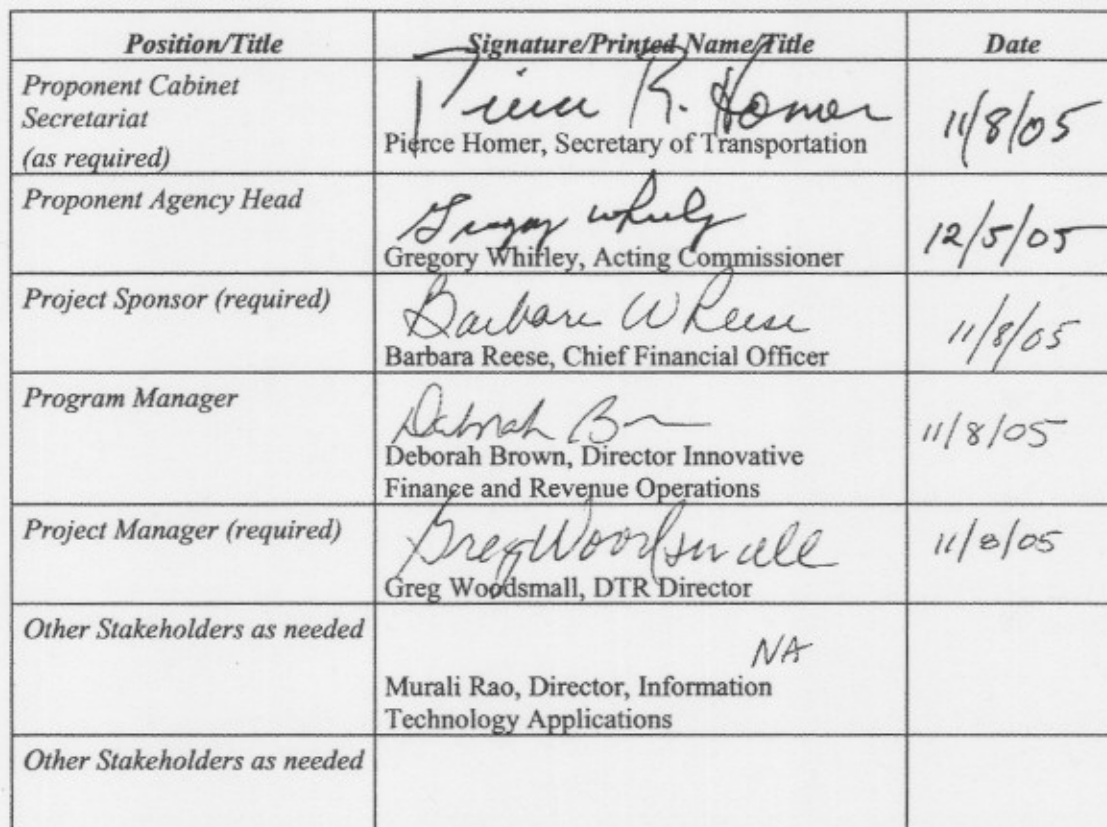 Position/Title Signature/Printed Name/Title Date
Proponent Cabinet
Secretariat
(as required)
Pierce R. Homer
Pierce Homer, Secretary of Transportation
11/8/05
Proponent Agency Head
Gregory Whirley
Gregory Whirley, Acting Commissioner
12/5/05
Project Sponsor (required)
Barbara W Reese
Barbara Reese, Chief Financial Officer
11/8/05
Program Manager
Deborah B
Deborah Brown, Director Innovative
Finance and Revenue Operations
11/8/05
Project Manager (required)
Greg Woodsmall
Greg Woodsmall, DTR Director
11/8/05
Other Stakeholders as needed
NA
Murali Rao, Director, Information
Technology Applications
Other Stakeholders as needed